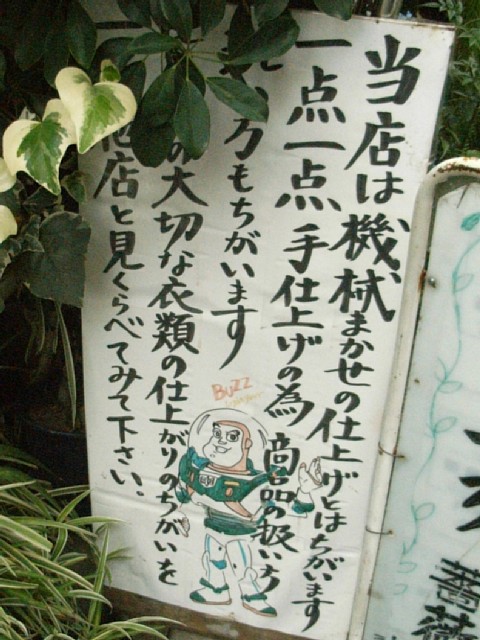 当店は、機械まかせの仕上げとはちがいます
一点一点、手仕上げの為、商品の扱い方
もちがいます
大切な衣類の仕上がりのちがいを
他店と見くらべてみて下さい、
BUZZ
薔薇